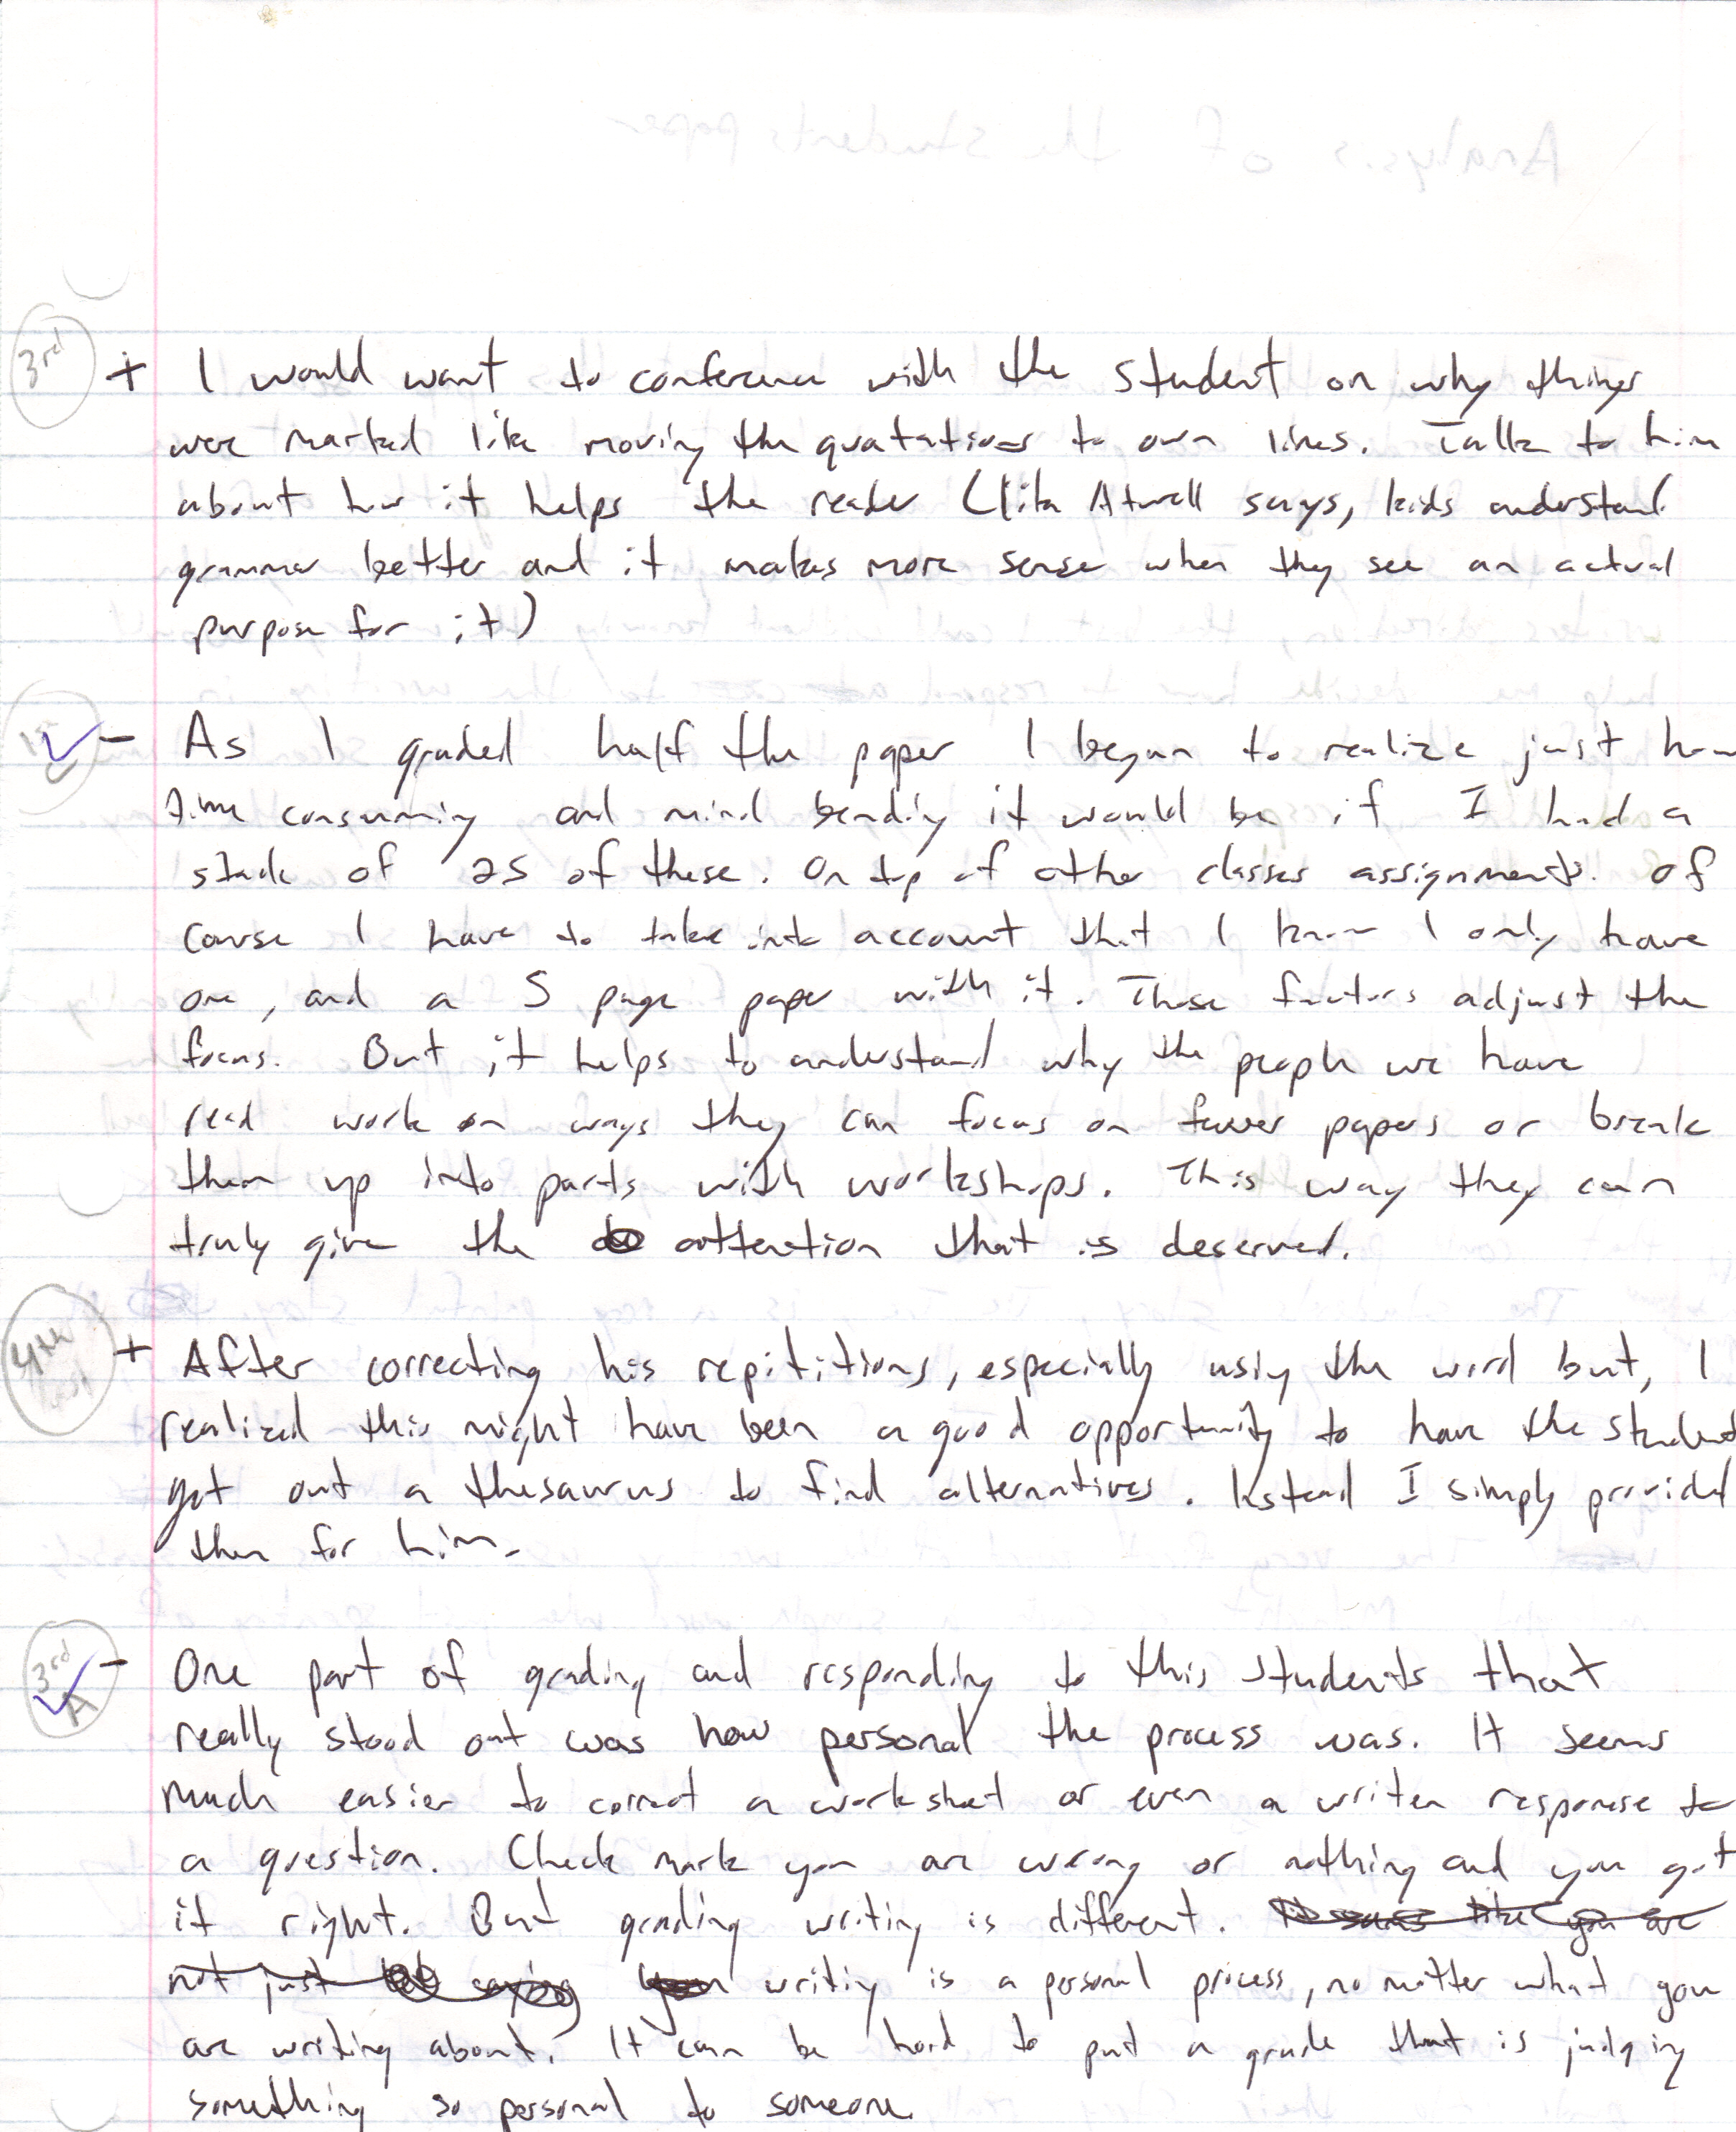 3rd + I would want to conference with the student on why things
were marked like moving the quatations to own lines. Talk to him
about how it helps the reader (like Atwell says, kids understand
grammar better and it makes more sense when they see an actual
purpose for it)
1st - As I graded half the paper I began to realize just how
time consuming and mind bending it would be if I had a
stack of 25 of these. On top of other classes assignments. Of
course I have to take into account that I know I only have
one, and a 5 page paper with it. These factors adjust the
focus. But it helps to understand why the people we have
read work on ways they can focus on fewer papers or break
them up into parts with workshops. This way they can
truly give the attention that is deserved.
4th last + After correcting his repititions, especially using the word but, I
realized this might have been a good opportunity to have the student
get out a thesaurus to find alternatives. Instead I simply provided
them for him.
3rd A - One part of grading and responding to this students that
really stood out was how personal the process was. It seems
much easier to correct a worksheet or even a writen response to
a question. Check mark you are wrong or nothing and you got
it right. But grading writing is different. It seems like you are
not just saying writing is a personal process, no matter what you
are writing about. It can be hard to put a grade that is judging
something so personal to someone.